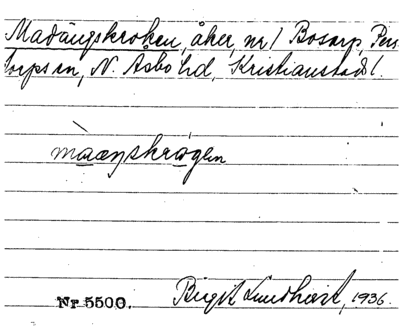 Madängskroken, åker, nr 1 Bosarp, Pers
torps sn, N. Åsbo hd, Kristianstads l.
màaŋskrøgen
Nr 5500. Birgit Lundkvist, 1936.